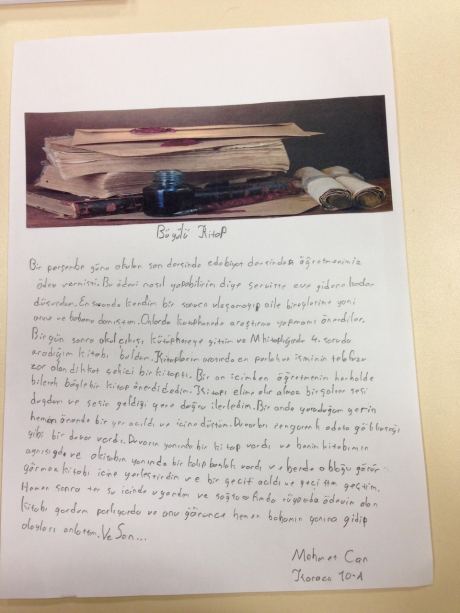 Büyülü Kitap
Bir perşembe günü okulun son dersinde edebiyat dersinden öğretmenimiz
ödev vermişti. Bu ödevi nasıl yapabilirim diye serviste eve gidene kadar
düşündüm. En sonunda kendim bir sonuca ulaşamayıp aile bireylerime yani
anne ve babama danıştım. Onlarda kütüphanede araştırma yapmamı önerdiler.
Bir gün sonra okul çıkışı kütüphaneye gittim ve M kitaplığında 4. sırada
aradığım kitabı buldum. Kitapların arasında en parlak ve isminin telaffuzu
zor olan dikkat çekici bir kitaptı. Bir an içimden öğretmenin herhalde
bilerek böyle bir kitap önerdi dedim. Kitabı elime alır almaz bir gülme sesi
duydum ve sesin geldiği yere doğru ilerledim. Bir anda yürüdüğüm yerin
hemen önünde bir yer açıldı ve içine düştüm. Duvarları rengarenk adeta gökkuşağı
gibi bir duvar vardı. Duvarın yanında bir kitap vardı ve benim kitabımın
aynısıydı ve o kitabın yanında bir kalıp boşluk vardı ve bende o boşluğu görür
görmez kitabı içine yerleştirdim ve bir geçit açıldı ve geçitten geçtim.
Hemen sonra ter su içinde uyandım ve sağ tarafımda rüyamda ödevim olan
kitabı gördüm parlıyordu ve onu görünce hemen babamın yanına gidip
olayları anlattım. Ve Son...
Mehmet Can
Karaca 10-A